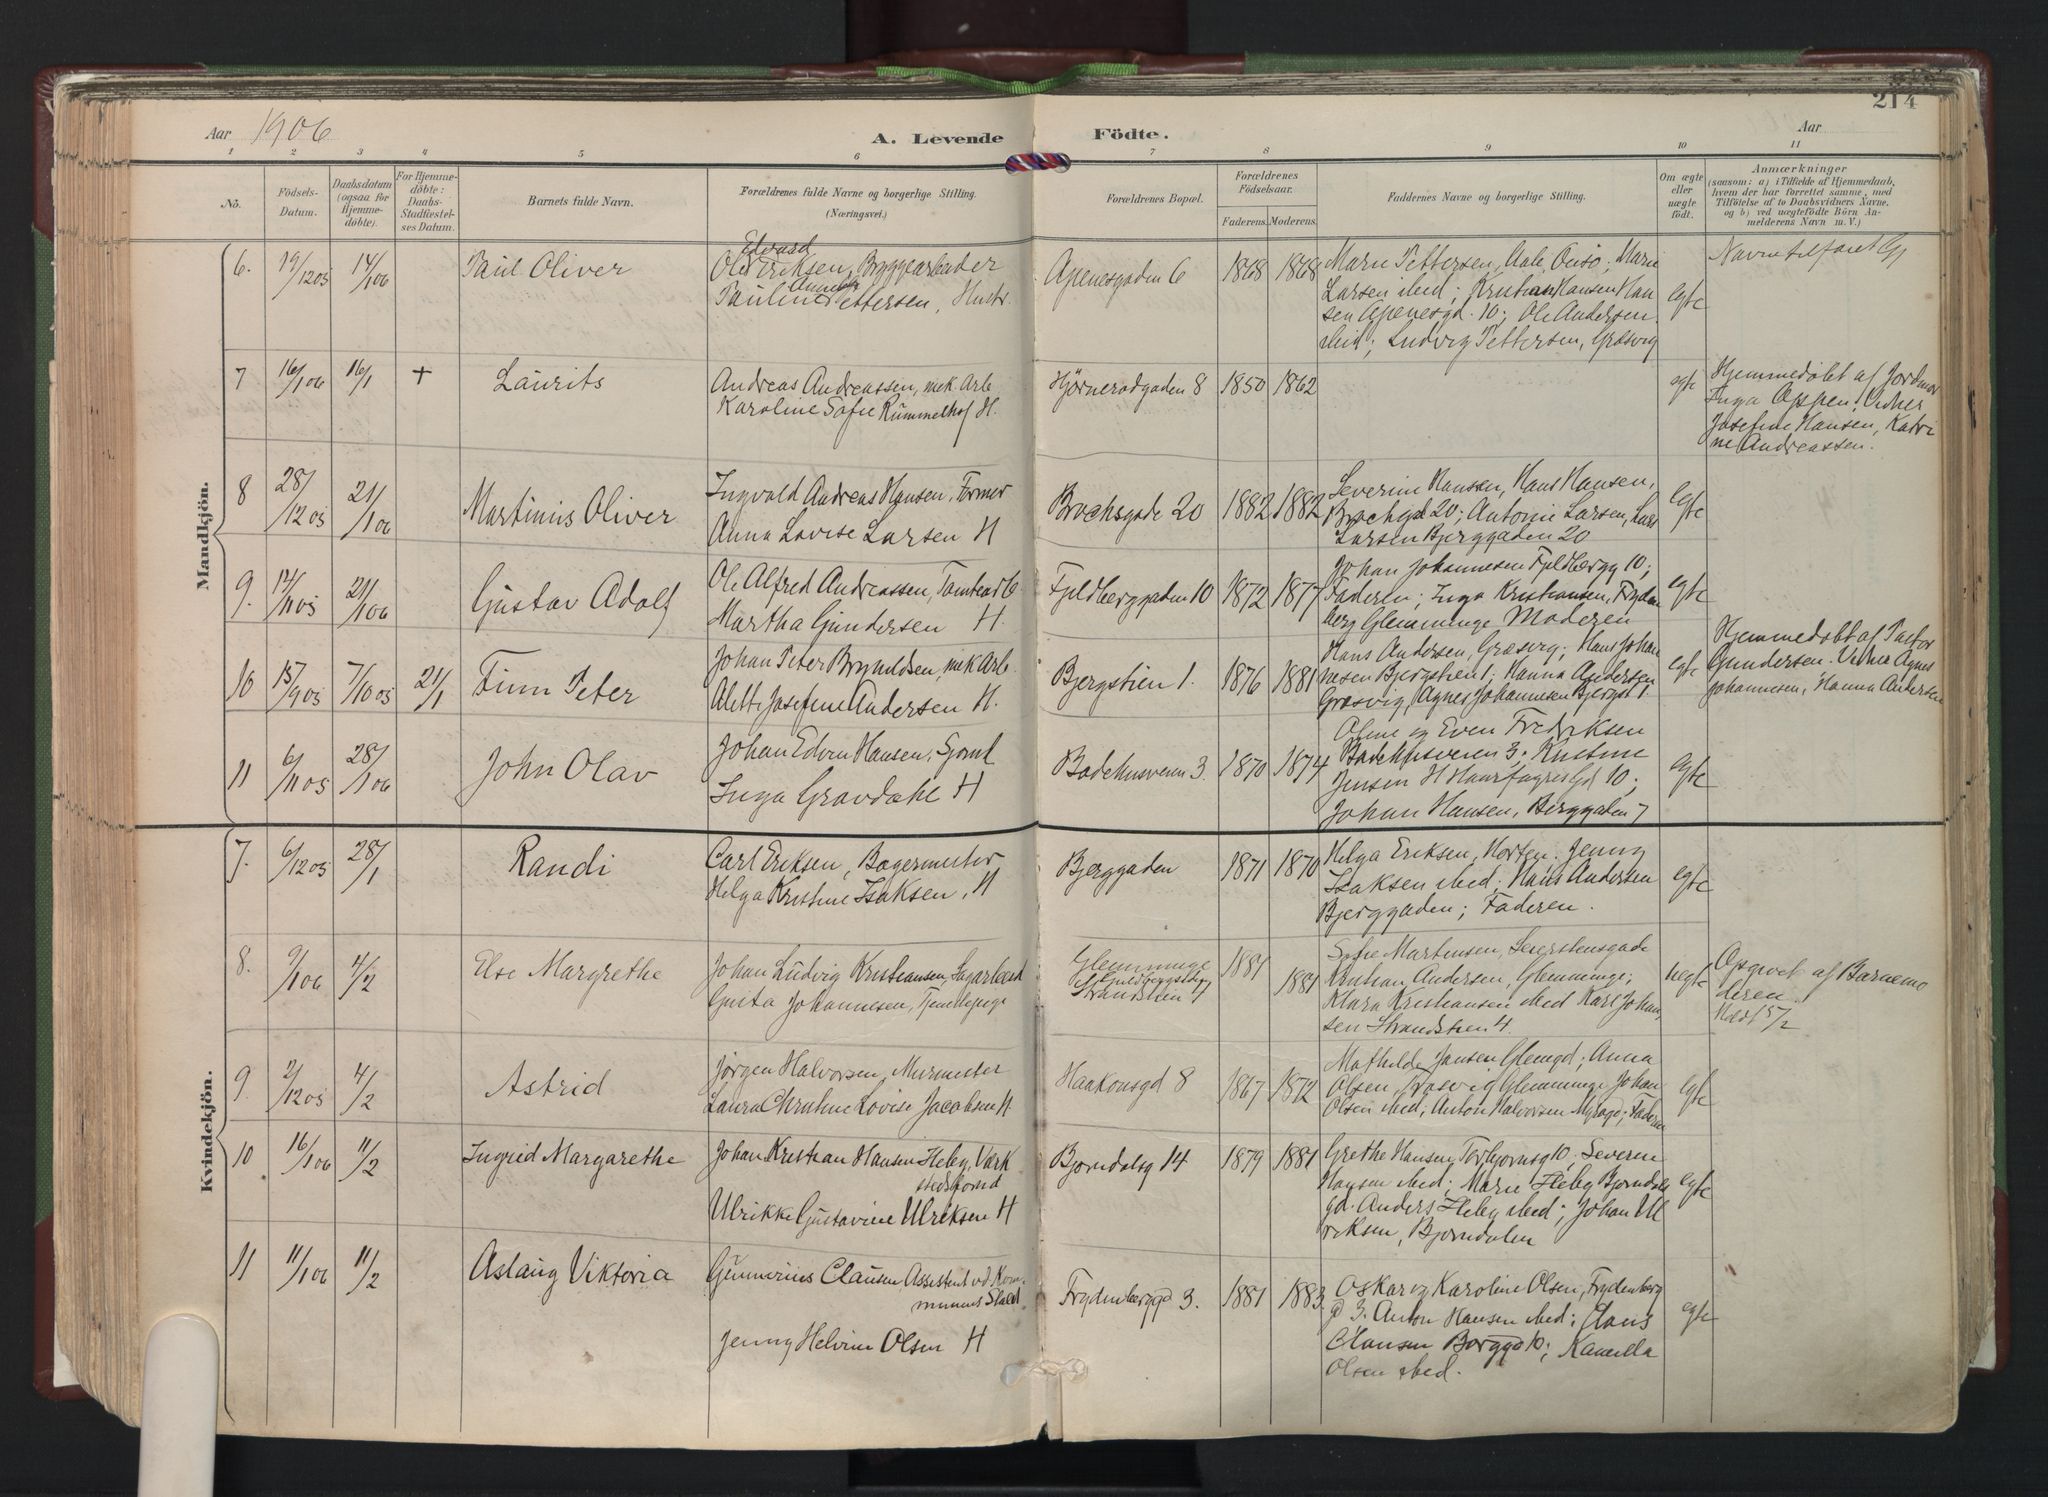 214
Aar 1906
A. Levende
Födte.
Aar
1 2 3 4 5 6 7 8 9 10 11
No.
Födsels-
Datum.
Daabsdatum
(ogsaa for
Hjemme-
döbte).
For Hjemme-
döbte:
Daabs-
Stadfæstel-
ses Datum.
Barnets fulde Navn.
Forældrenes fulde Navne og borgerlige Stilling.
(Næringsvei.)
Forældrenes Bopæl.
Forældrenes
Födselsaar.
Faderens. Moderens.
Faddernes Navne og borgerlige Stilling.
Om ægte
eller
uægte
födt.
Anmærkninger
(saasom: a) i Tilfælde af Hjemmedaab,
hvem der har forrettet samme, med
Tilföielse af to Daabsvidners Navne.
og b) ved uægtefödte Börn An-
melderens Navn m. V.)
Mandkjön.
6. 19/12 05 14/1 06 Paul Oliver
Edvard
Ole Eriksen, Bryggearbeider
Pauline Pettersen, Hustr.
Apenesgaden 6 1868 1868
Marie Pettersen, Marie
Larsen ibid; Kristian Hansen Han
sen Apenesgd. 10; Ole Andersen
ibid; Ludvig Pettersen, Græsvig
egte
7 16/1 06 16/1 + Laurits
Andreas Andreassen, mek. Arb.
Karoline Sofie Rummelhof H.
Hjørnerødgaden 8 1850 1862
egte
Hjemmedøbt af Jordmor
Inga Oppen. Vidner
Josefine Hansen, Katri
ne Andreassen.
8 28/12 05 21/1 06 Martinius Oliver
Ingvald Andreas Hansen, Former
Anna Lovise Larsen H
Brochsgade 20 1882 1882
Severin Hansen, Hans Hansen,
Brochgd 20; Antonie Larsen, Lars
Larsen Bjerggaden 20
egte
9. 14/11 05 21/1 06 Gustav Adolf
Ole Alfred Andreassen, Tomtearb
Martha Gundersen H.
Fjeldberggaden 10 1872 1877
Johan Johannesen Fjeldbergg 10;
Faderen; Inga Kristiansen, Fryden
berg Glemminge Moderen
egte
10 15/9 05 7/10 05 21/1 Finn Peter
Johan Peter Brynildsen, mek Arb.
Alette Josefine Andersen H.
Bjergstien 1. 1876 1881
Hans Andersen, Græsvig; Hans Johan
nesen Bjergstien 1; Hanna Andersen
Græsvig, Agnes Johannesen Bjergst 1
egte
Hjemmedøbt af Pastor
Gundersen. Vidner Agnes
Johannesen, Hanna Andersen
11 6/11 05 28/1 06 John Olav
Johan Edvin Hansen, Sjømd
Inga Gravdahl H
Badehusveien 3. 1870 1874
Oline og Even Fredriksen
Badehusveien 3; Kristine
Jensen H Haarfagres Gd 10;
Johan Hansen, Berggaden 7
egte
Kvindekjön.
7. 6/12 05 28/1 Randi
Carl Eriksen, Bagermester
Helga Kristine Isaksen, H
Bjerggaden 1871 1870
Helga Eriksen, Horten. Jenny
Isaksen ibid; Hans Andersen
Bjerggaden; Faderen.
egte
8. 9/1 06 4/2 Else Margrethe
Johan Ludvig Kristiansen, Sagarbeid
Gusta Johannesen, Tjenestepige
Glemminge
Strandstien 4
1881 1881
Sofie Martinsen, Seierstensgade
Kristian Andersen, Glemminge;
Klara Kristiansen ibid Karl Johan
sen Strandstien 4.
uegte
Opgivet af Barnemo
deren.
9. 2/12 05 4/2 Astrid
Jørgen Halvorsen, Murmester
Laura Christine Lovise Jacobsen H.
Haakonsgd 8 1867 1872
Mathilde Jansen Glemgd; Anna
Olsen, Græsvig Glemminge Johan
Olsen ibid; Anton Halvorsen; Faderen
egte
10 16/1 06 11/2 Ingrid Margarethe
Johan Kristian Hansen Heby, Værk
stedsformd
Ulrikke Gustavine Ulriksen H
Bjørndalsg 14 1879 1881
Grethe Hansen Torbjørnsg 10; Severin
Hansen ibid; Marie Heby Bjørndals
gd. Anders Heby ibid; Johan Ul
riksen, Bjørndalen
egte
11 11/1 06 11/2 Aslaug Viktoria
Gunnerius Clausen Assistent vd Kom-
munens Stald
Jenny Helvine Olsen H
Frydenberggd 3. 1881 1883
Oskar og Karoline Olsen, Frydenberg
gd 3. Anton Hansen ibid; Hans
Clausen Borggd 10; Kamilla
Olsen ibid.
egte